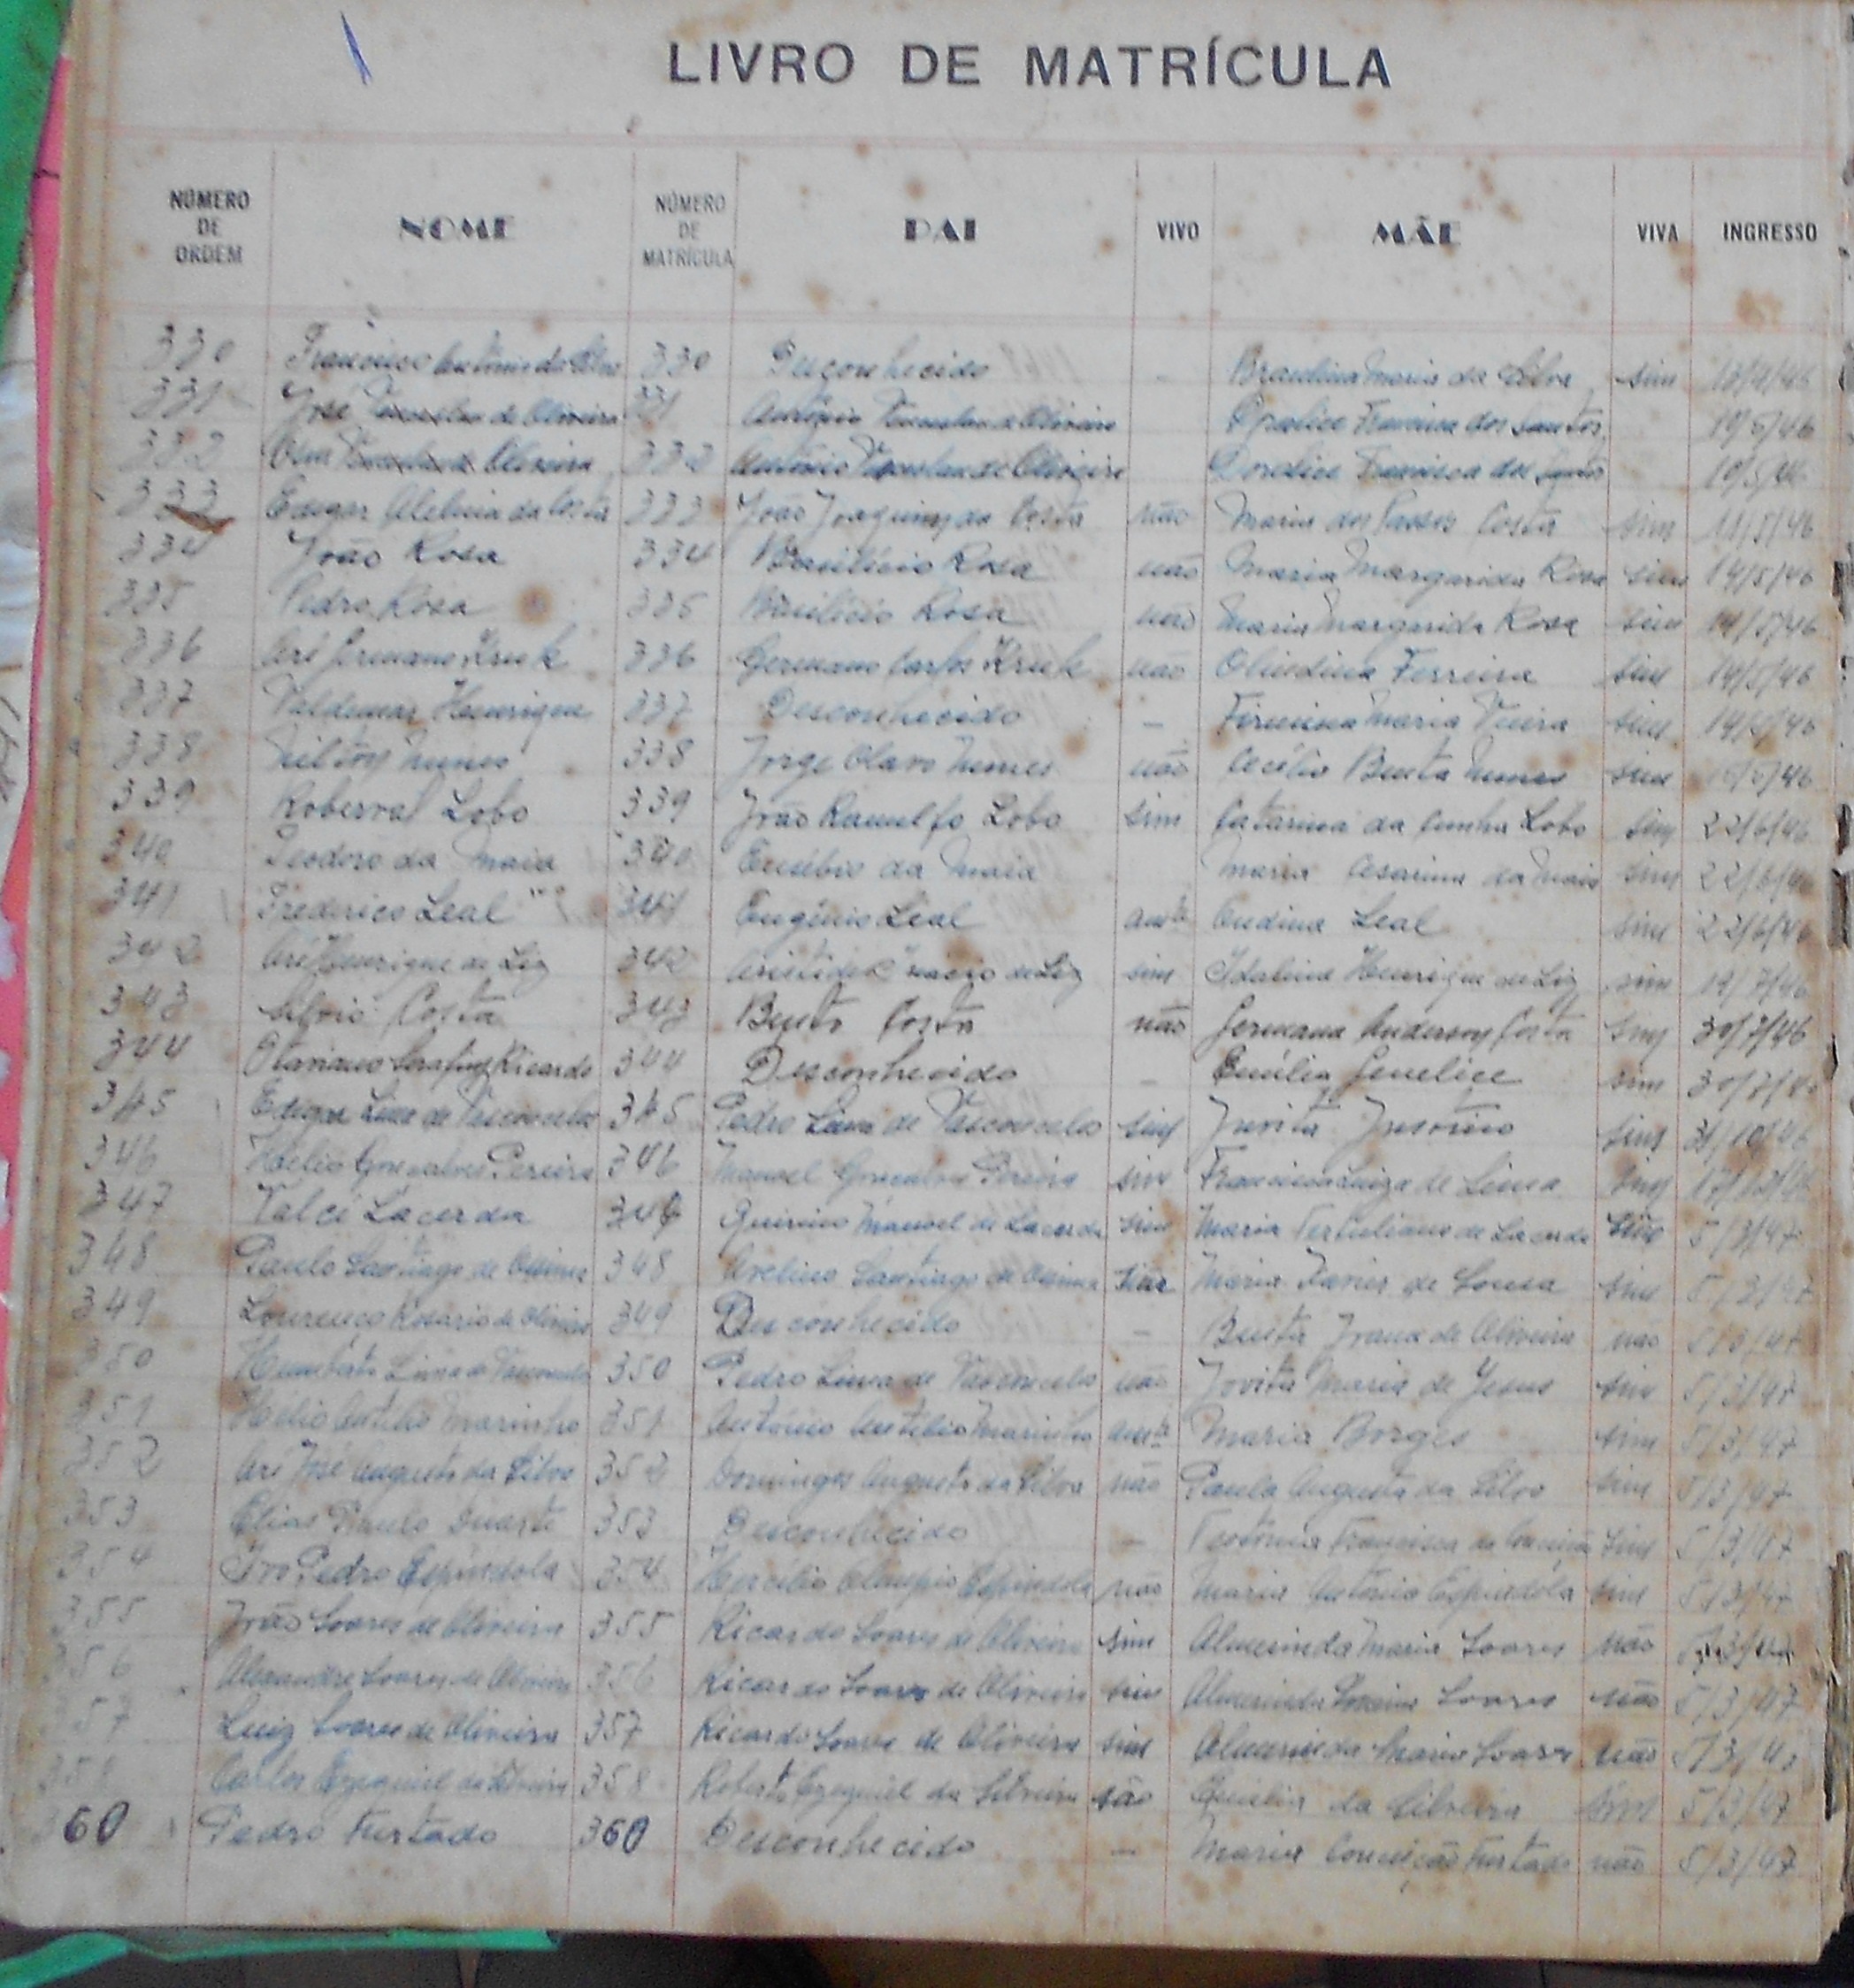 LIVRO DE MATRÍCULA
NÚMERO DE ORDEM NOME NÚMERO DE MATRÍCULA PAI VIVO MÃE VIVA INGRESSO
330 Francisco Antônio da Silva 330 Desconhecido - Braulina Maria da Silva sim
331 José de Oliveira 331 de Oliveira Francisca dos Santos 10/5/46
332 Oliveira 332 Antônio de Oliveira Doralice Francisca dos Santos 10/5/46
333 Edgar da Costa 333 João Joaquim da Costa não Maria dos Passos Costa sim 11/5/46
334 João Rosa 334 Basilício Rosa não Maria Margarida Rosa sim 14/5/46
335 Pedro Rosa 335 Basilício Rosa não Maria Margarida Rosa sim 14/5/46
336 Ari Germano Kruk 336 Germano Carlos Kruk não Olindina Ferreira sim 14/5/46
337 Valdemar Henrique 337 Desconhecido - Firmina Maria Vieira sim 14/5/46
338 Nilton Nunes 338 Jorge Olavo Nunes não Cecília Benta Nunes sim
339 Roberval Lobo 339 João Ranulfo Lobo sim Catarina da Cunha Lobo sim 22/6/46
340 Teodoro da Maia 340 Eusébio da Maia Maria Cesarina da Maia sim 22/6/46
341 Frederico Leal 341 Eugênio Leal auste Ondina Leal sim 22/6/46
342 Ari Henrique de Liz 342 de Liz sim Idalina Henrique de Liz sim
343 Silvio Costa 343 Bento Costa não Germana Anderson Costa sim 30/7/46
344 Otaviano Serafim Ricardo 344 Desconhecido - Emília sim 30/7/46
345 Edgar Lima de Vasconcelos 345 Pedro Lima de Vasconcelos sim sim 31/10/46
346 Helio Gonçalves Pereira 346 Manoel Gonçalves Pereira sim Francisca Luiza de Lima sim
347 Valci Lacerda 346 Quirino Manoel de Lacerda sim Maria Tertuliana de Lacerda sim 5/3/47
348 Paulo Santiago de 348 Avelino Santiago de sim Maria Xavier de Sousa sim 5/3/47
349 Lourenço Rosario de Oliveira 349 Desconhecido - Benta de Oliveira não 5/3/47
350 Humberto Lima de Vasconcelos 350 Pedro Lima de Vasconcelos não Jovita Maria de Jesus sim 5/3/47
351 Helio Marinho 351 Antônio Marinho auste Maria Borges sim 5/3/47
352 Ari José Augusto da Silva 352 Domingos Augusto da Silva não Paula Augusta da Silva sim 5/3/47
353 Elias Duarte 353 Desconhecido - Francisca da Conceição sim 5/3/47
354 Ivo Pedro Espíndola 354 Hercílio Espíndola não Maria Antônia Espíndola sim 5/3/47
355 João Soares de Oliveira 355 Ricardo Soares de Oliveira sim Almerinda Maria Soares não 5/3/47
356 Alexandre Soares de Oliveira 356 Ricardo Soares de Oliveira sim Almerinda Maria Soares não 5/3/47
57 Luiz Soares de Oliveira 357 Ricardo Soares de Oliveira sim Almerinda Maria Soares não 5/3/47
358 Carlos Ezequiel da Silveira 358 Roberto Ezequiel da Silveira não da Silveira sim 5/3/47
360 Pedro Furtado 360 Desconhecido - Maria Conceição Furtado não 5/3/47